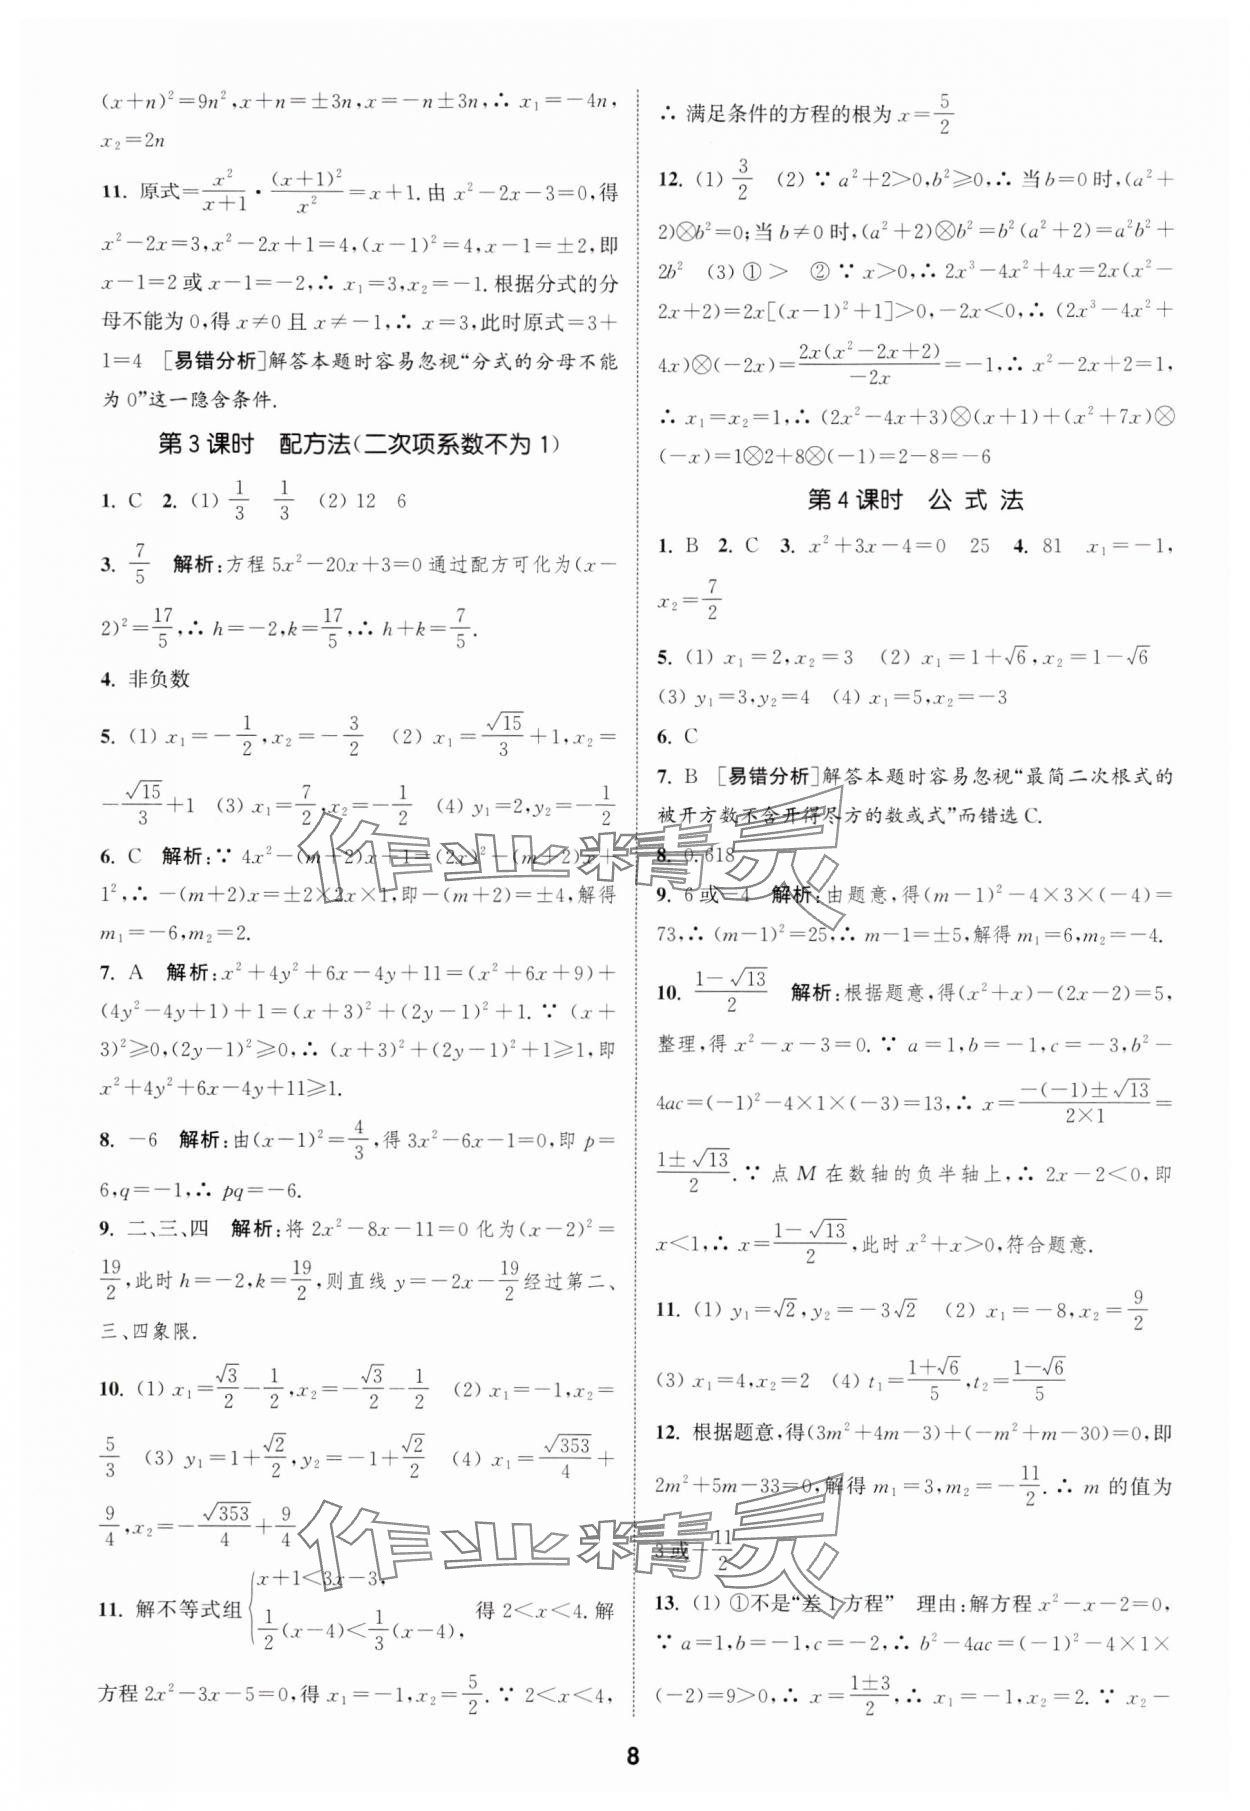 (x+n)²=9n²,x+n=±3n,x=-n±3n,∴ x₁=-4n,
x₂=2n
11. 原式=x²/(x+1)·(x+1)²/x²=x+1.由 x²-2x-3=0,得
x²-2x=3,x²-2x+1=4,(x-1)²=4,x-1=±2,即
x-1=2或 x-1=-2,∴ x₁=3,x₂=-1.根据分式的分
母不能为 0,得 x≠0 且 x≠-1,∴ x=3,此时原式=3+
1=4 [易错分析]解答本题时容易忽视“分式的分母不能
为 0”这一隐含条件.
第 3 课时 配方法(二次项系数不为 1)
1. C 2. (1) 1/3 1/3 (2) 12 6
3. 7/5 解析:方程 5x²-20x+3=0 通过配方可化为(x-
2)²=17/5,∴ h=-2,k=17/5,∴ h+k=7/5.
4. 非负数
5. (1) x₁=-1/2,x₂=-3/2 (2) x₁=√15/3+1,x₂=
-√15/3+1 (3) x₁=7/2,x₂=-1/2 (4) y₁=2,y₂=-1/2
6. C 解析:∵ 4x²-(m+2)x+1=(2x)²-(m+2)x+
1²,∴ -(m+2)x=±2×2x×1,即-(m+2)=±4,解得
m₁=-6,m₂=2.
7. A 解析:x²+4y²+6x-4y+11=(x²+6x+9)+
(4y²-4y+1)+1=(x+3)²+(2y-1)²+1.∵ (x+
3)²≥0,(2y-1)²≥0,∴ (x+3)²+(2y-1)²+1≥1,即
x²+4y²+6x-4y+11≥1.
8. -6 解析:由(x-1)²=4/3,得 3x²-6x-1=0,即 p=
6,q=-1,∴ pq=-6.
9. 二、三、四 解析:将 2x²-8x-11=0 化为(x-2)²=
19/2,此时 h=-2,k=19/2,则直线 y=-2x-19/2经过第二、
三、四象限.
10. (1) x₁=√3/2-1/2,x₂=-√3/2-1/2 (2) x₁=-1,x₂=
5/3 (3) y₁=1+√2/2,y₂=-1+√2/2 (4) x₁=√353/4+
9/4,x₂=-√353/4+9/4
11. 解不等式组{x+1<3x-3, 1/2(x-4)<1/3(x-4), 得 2<x<4.解
方程 2x²-3x-5=0,得 x₁=-1,x₂=5/2.∵ 2<x<4,
∴ 满足条件的方程的根为 x=5/2
12. (1) 3/2 (2) ∵ a²+2>0,b²≥0,∴ 当 b=0 时,(a²+
2)⊗b²=0;当 b≠0 时,(a²+2)⊗b²=b²(a²+2)=a²b²+
2b² (3) ① > ② ∵ x>0,∴ 2x³-4x²+4x=2x(x²-
2x+2)=2x[(x-1)²+1]>0,-2x<0,∴ (2x³-4x²+
4x)⊗(-2x)=2x(x²-2x+2)/-2x=-1,∴ x²-2x+2=1,
∴ x₁=x₂=1,∴ (2x²-4x+3)⊗(x+1)+(x²+7x)⊗
(-x)=1⊗2+8⊗(-1)=2-8=-6
第 4 课时 公 式 法
1. B 2. C 3. x²+3x-4=0 25 4. 81 x₁=-1,
x₂=7/2
5. (1) x₁=2,x₂=3 (2) x₁=1+√6,x₂=1-√6
(3) y₁=3,y₂=4 (4) x₁=5,x₂=-3
6. C
7. B [易错分析]解答本题时容易忽视“最简二次根式的
被开方数不含开得尽方的数或式”而错选 C.
8. 0.618
9. 6或-4 解析:由题意,得(m-1)²-4×3×(-4)=
73,∴ (m-1)²=25,∴ m-1=±5,解得 m₁=6,m₂=-4.
10. (1-√13)/2 解析:根据题意,得(x²+x)-(2x-2)=5,
整理,得 x²-x-3=0.∵ a=1,b=-1,c=-3,b²-
4ac=(-1)²-4×1×(-3)=13,∴ x=(-(-1)±√13)/(2×1)=
(1±√13)/2.∵ 点 M 在数轴的负半轴上,∴ 2x-2<0,即
x<1,∴ x=(1-√13)/2,此时 x²+x>0,符合题意.
11. (1) y₁=√2,y₂=-3√2 (2) x₁=-8,x₂=9/2
(3) x₁=4,x₂=2 (4) t₁=(1+√6)/5,t₂=(1-√6)/5
12. 根据题意,得(3m²+4m-3)+(-m²+m-30)=0,即
2m²+5m-33=0,解得 m₁=3,m₂=-11/2.∴ m 的值为
3或-11/2
13. (1) ①不是“差 1 方程” 理由:解方程 x²-x-2=0,
∵ a=1,b=-1,c=-2,∴ b²-4ac=(-1)²-4×1×
(-2)=9>0,∴ x=(1±3)/2,∴ x₁=-1,x₂=2.∵ x₂-
8
作业精灵
作业精灵